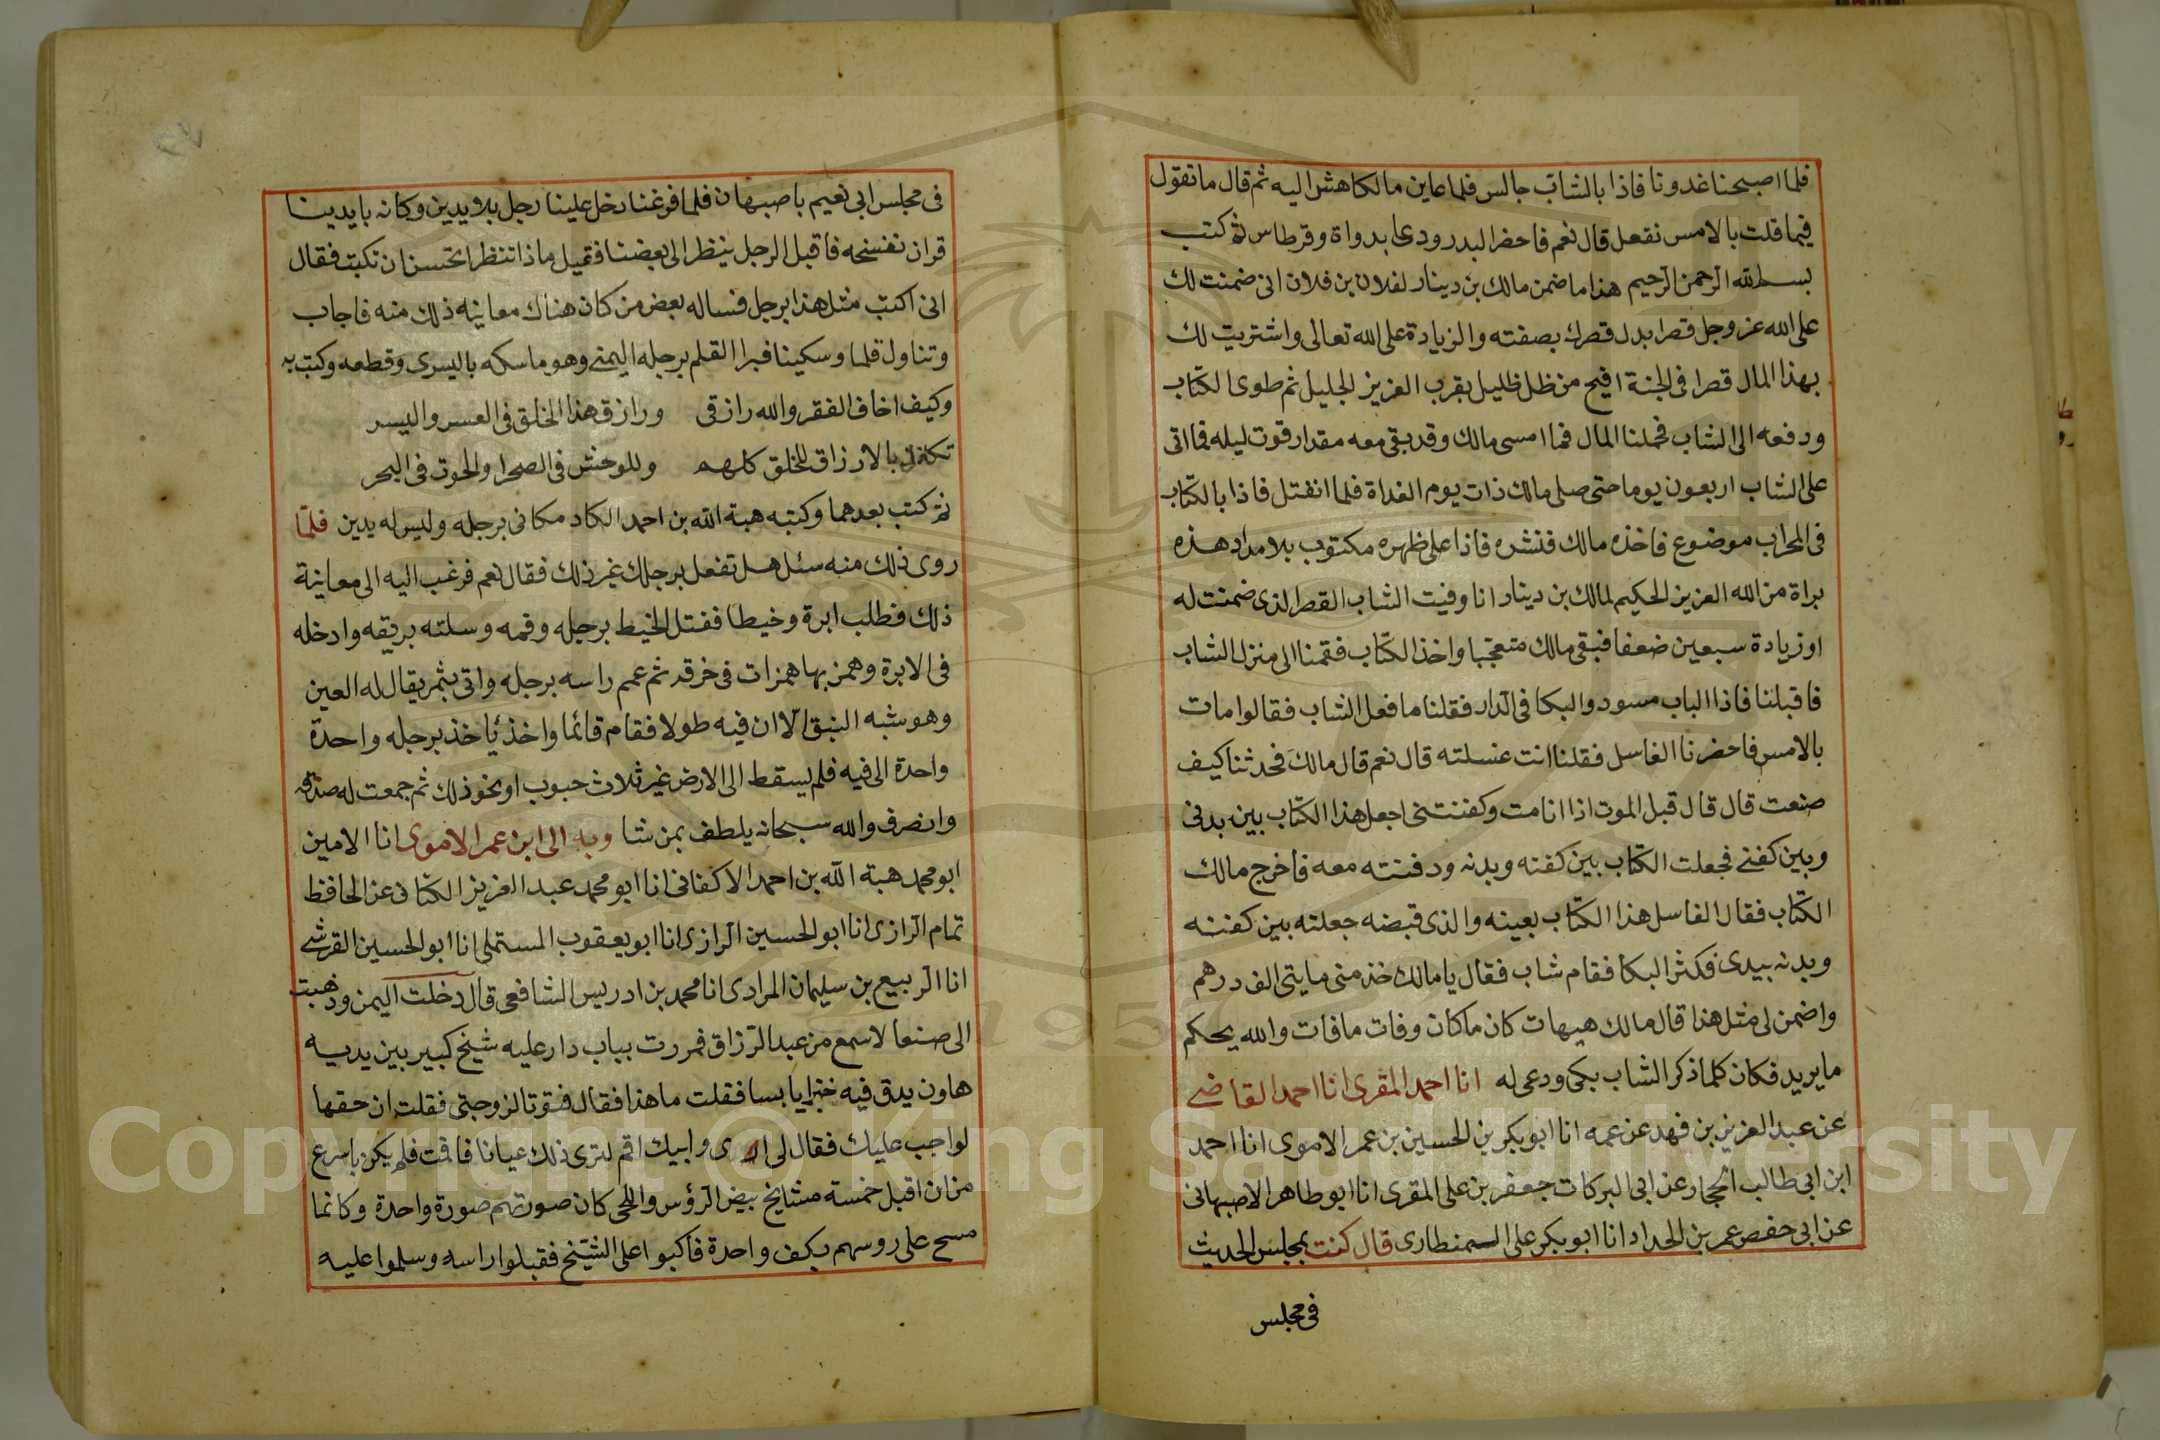 فلما اصبحنا غدونا فاذا بالشاب جالس فلما عاين مالكا هش اليه ثم قال ما تقول
فيما قلت بالامس نفعل قال نعم فاحضر البدر ودعا بدواة وقرطاس ثم كتب
بسم الله الرحمن الرحيم هذا ما ضمن مالك بن دينار لفلان بن فلان انى ضمنت لك
على الله عز وجل قصرا بدل قصرك بصفته والزيادة على الله تعالى واشتريت لك
بهذا المال قصرا فى الجنة افيح من ظل ظليل بقرب العزيز الجليل ثم طوى الكتاب
ودفعه الى الشاب فحملنا المال فما امسى مالك وقد بقى معه مقدار قوت ليله فما اتى
على الشاب اربعون يوما حتى صلى مالك ذات يوم الغداة فلما انفتل فاذا بالكتاب
فى المحراب موضوع فاخذه مالك فنشره فاذا على ظهره مكتوب بلا مداد هذه
براة من الله العزيز الحكيم لمالك بن دينار انا وفيت الشاب القصر الذى ضمنت له
او زيادة سبعين ضعفا فبقى مالك متعجبا واخذ الكتاب فقمنا الى منزل الشاب
فاقبلنا فاذا الباب مسود والبكا فى الدار فقلنا ما فعل الشاب فقالوا مات
بالامس فاحضرنا الغاسل فقلنا انت غسلته قال نعم قال مالك فحدثنا كيف
صنعت قال قال قبل الموت اذا انا مت وكفنتنى اجعل هذا الكتاب بين بدنى
وبين كفنى فجعلت الكتاب بين كفنه وبدنه ودفنته معه فاخرج مالك
الكتاب فقال الغاسل هذا الكتاب بعينه والذى قبضه جعلته بين كفنه
وبدنه بيدى فكثر البكا فقام شاب فقال يا مالك خذ منى مايتى الف درهم
واضمن لى مثل هذا قال مالك هيهات كان ما كان وفات ما فات والله يحكم
ما يريد فكان كلما ذكر الشاب بكى ودعى له انا احمد المقرى انا احمد القاضى
عن عبد العزيز بن فهد عن عمه انا ابو بكر بن الحسين بن عمر الاموى انا احمد
ابن ابى طالب الحجار عن ابى البركات جعفر بن على المقرى انا ابو طاهر الاصبهانى
عن ابى حفص عمر بن الحداد انا ابو بكر على السمنطارى قال كنت بمجلس الحديث
فى مجلس
فى مجلس ابى نعيم باصبهان فلما فرغنا دخل علينا رجل بلا يدين وكانه بايدينا
قران ننسخه فاقبل الرجل ينظر الى بعضنا فقيل ماذا تنتظر اتحسن ان تكتب فقال
انى اكتب مثل هذا برجل فساله بعض من كان هناك معاينه ذلك منه فاجاب
وتناول قلما وسكينا فبرا القلم برجله اليمنى وهو ماسكه باليسرى وقطعه وكتب به
وكيف اخاف الفقر والله رازقى ورازق هذا الخلق فى العسر واليسر
تكفل بالارزاق للخلق كلهم وللوحش فى الصحرا والحوت فى البحر
ثم كتب بعدهما وكتبه هبة الله بن احمد الكاد مكانى برجله وليس له يدين فلما
روى ذلك منه سئل هل تفعل برجلك غير ذلك فقال نعم فرغب اليه الى معاينة
ذلك فطلب ابرة وخيطا ففتل الخيط برجله وفمه وسلته بريقه وادخله
فى الابرة وهمز بها همزات فى خرقه ثم عمم راسه برجله واتى بثمر يقال له العين
وهو شبه النبق الا ان فيه طولا فقام قائما واخذ ياخذ برجله واحدة
واحدة الى فيه فلم يسقط الى الارض غير ثلاث حبوب او نحو ذلك ثم جمعت له صدقه
وانصرف والله سبحانه يلطف بمن شا وبه الى ابن عمر الاموى انا الامين
ابو محمد هبة الله بن احمد الاكفانى انا ابو محمد عبد العزيز الكتانى عن الحافظ
تمام الرازى انا ابو الحسين الرازى انا ابو يعقوب المستملى انا ابو الحسين القرشى
انا الربيع بن سليمان المرادى انا محمد بن ادريس الشافعى قال دخلت اليمن وذهبت
الى صنعا لاسمع من عبد الرزاق فمررت بباب دار عليه شيخ كبير بين يديه
هاون يدق فيه خبزا يابسا فقلت ما هذا فقال فتوتا لزوجتى فقلت ان حقها
لواجب عليك فقال لى ى وابيك اقم لترى ذلك عيانا فاقمت فلم يكن باسرع
من ان اقبل خمسة مشايخ بيض الرؤس واللحى كان صورتهم صورة واحدة وكانما
مسح على روسهم بكف واحدة فاكبوا على الشيخ فقبلوا راسه وسلموا عليه
Copyright © King Saud University